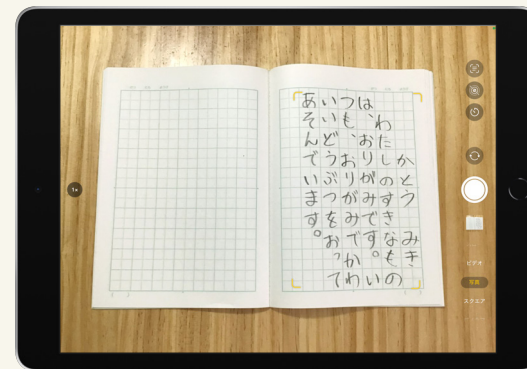 かとう みき
わたしのすきなもの
は、おりがみです。い
つも、おりがみでかわ
いいどうぶつをおって
あそんでいます。
1×
ビデオ
写真
スクエア